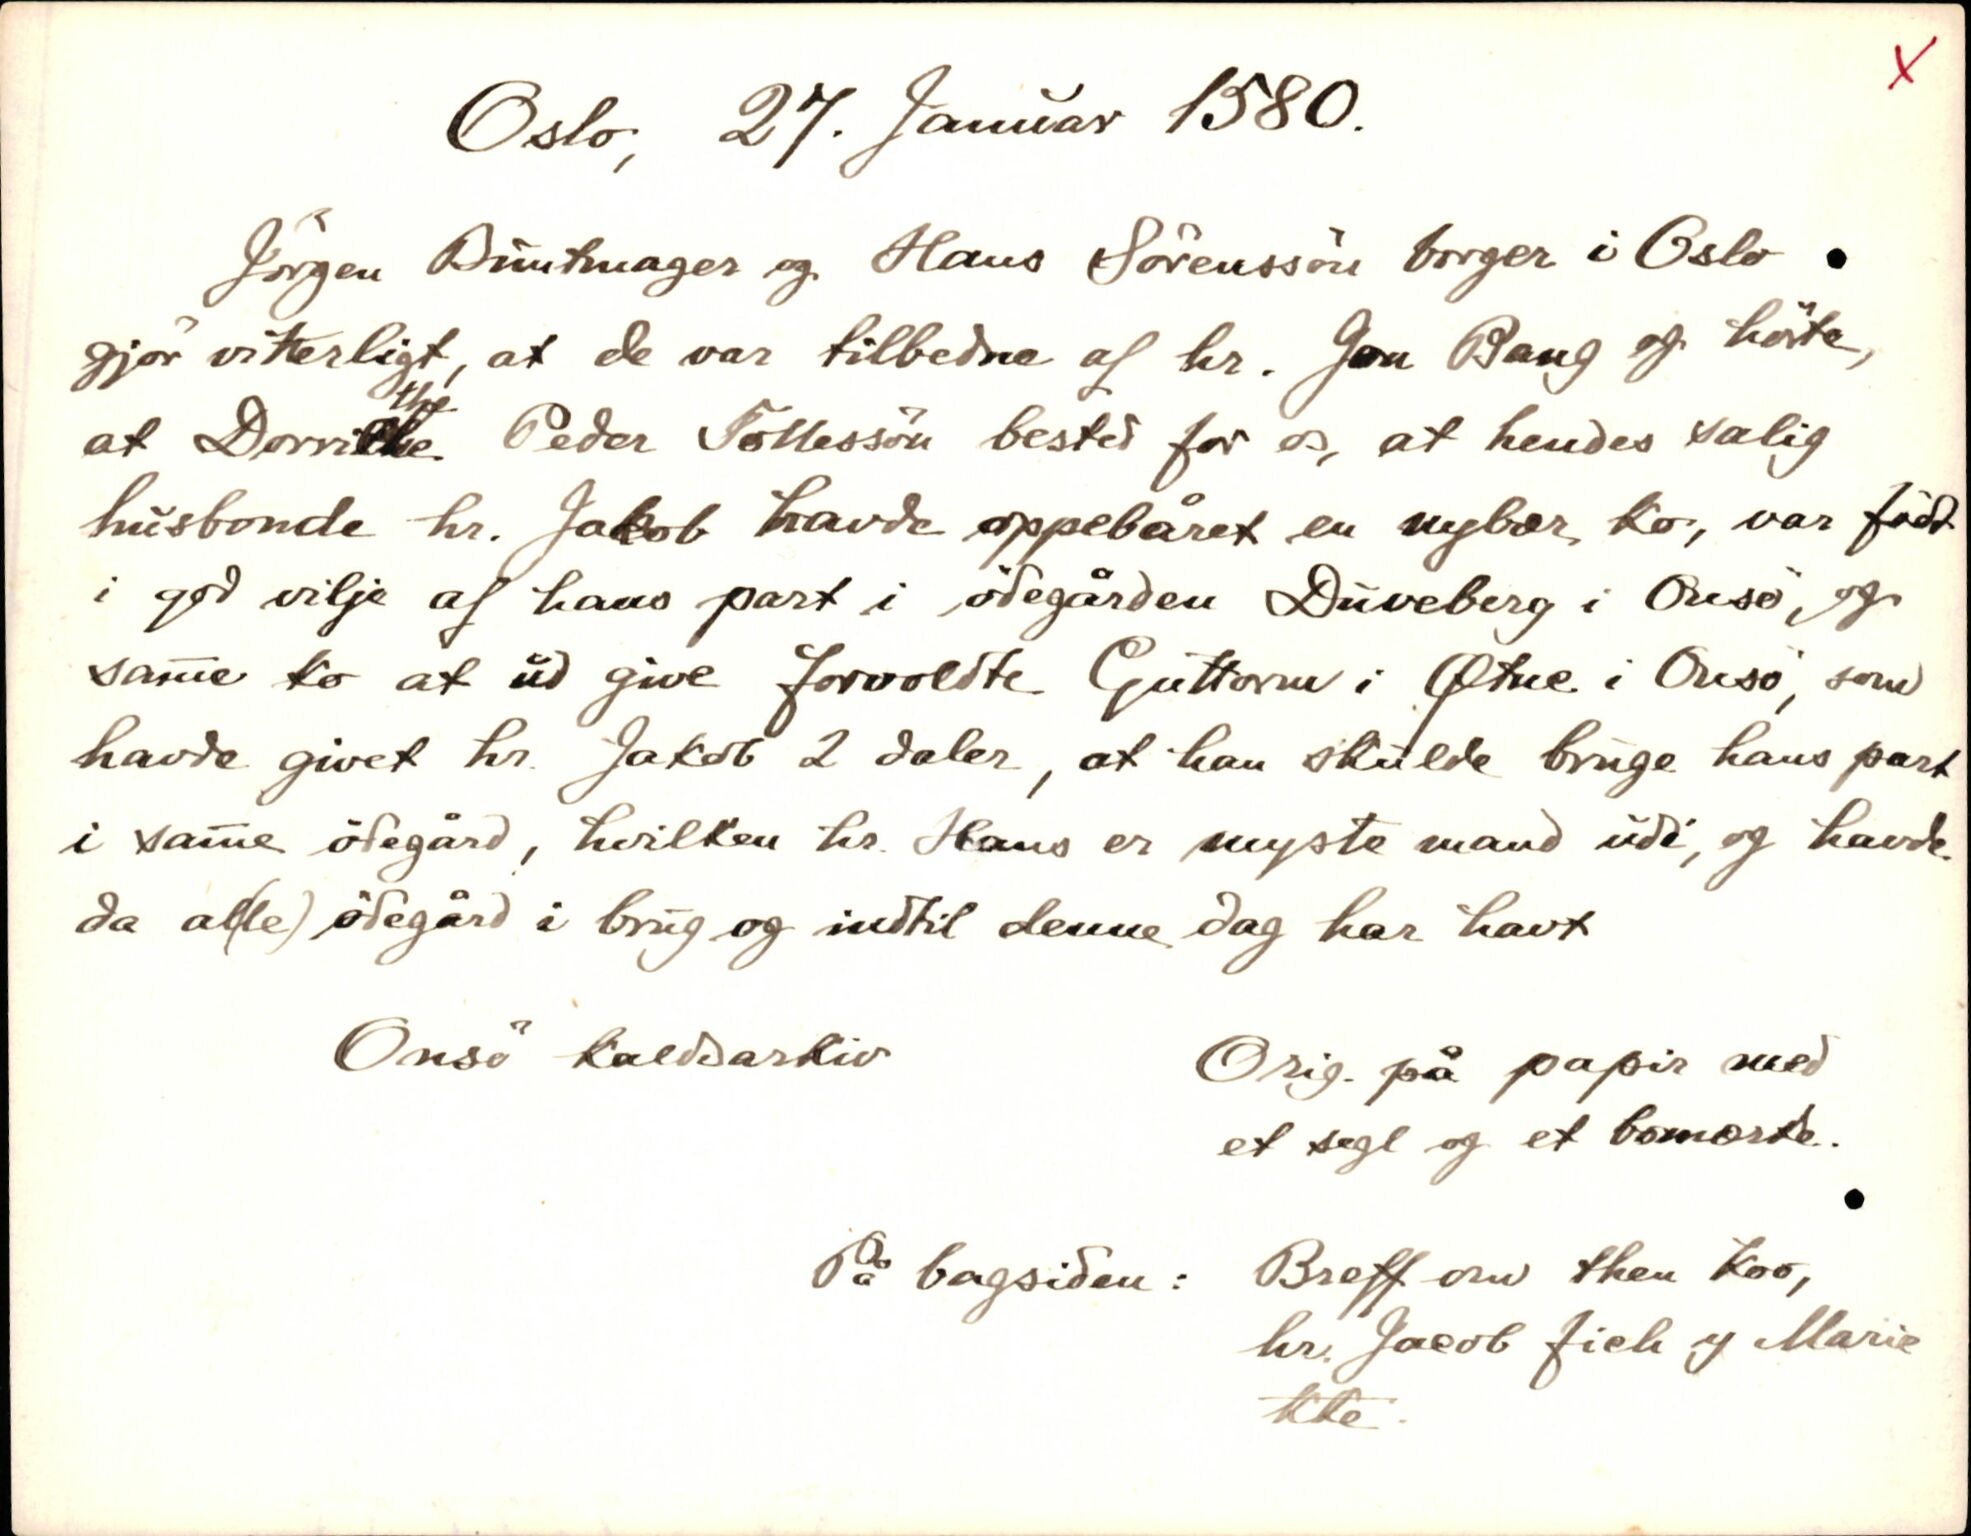 Oslo, 27. Januar 1580.
Jörgen Buntmager og Hans Sörenssön borger i Oslo
gjör vitterligt, at de var tilbedne af hr. Jon Bang og hörte,
at Dorrithe Peder Tollessön bestod for os, at hendes salig
husbonde hr. Jakob havde oppebåret en nybær ko, var född
i god vilje af hans part i ödegården Duveberg i Onsö, og
sam̄e ko at ud give forvoldte Guttorm i Øtne i Onsö, som
havde givet hr. Jakob 2 daler, at han skulde bruge hans part
i sam̄e ödegård, hvilken hr. Hans er myste mand udi, og havde
da al(le) ödegård i brug og indtil denne dag har havt
Onsö kaldsarkiv
Orig. på papir med
et segl og et bomærke.
På bagsiden: Breff om then koo,
hr. Jacob fich y Marie
kke.